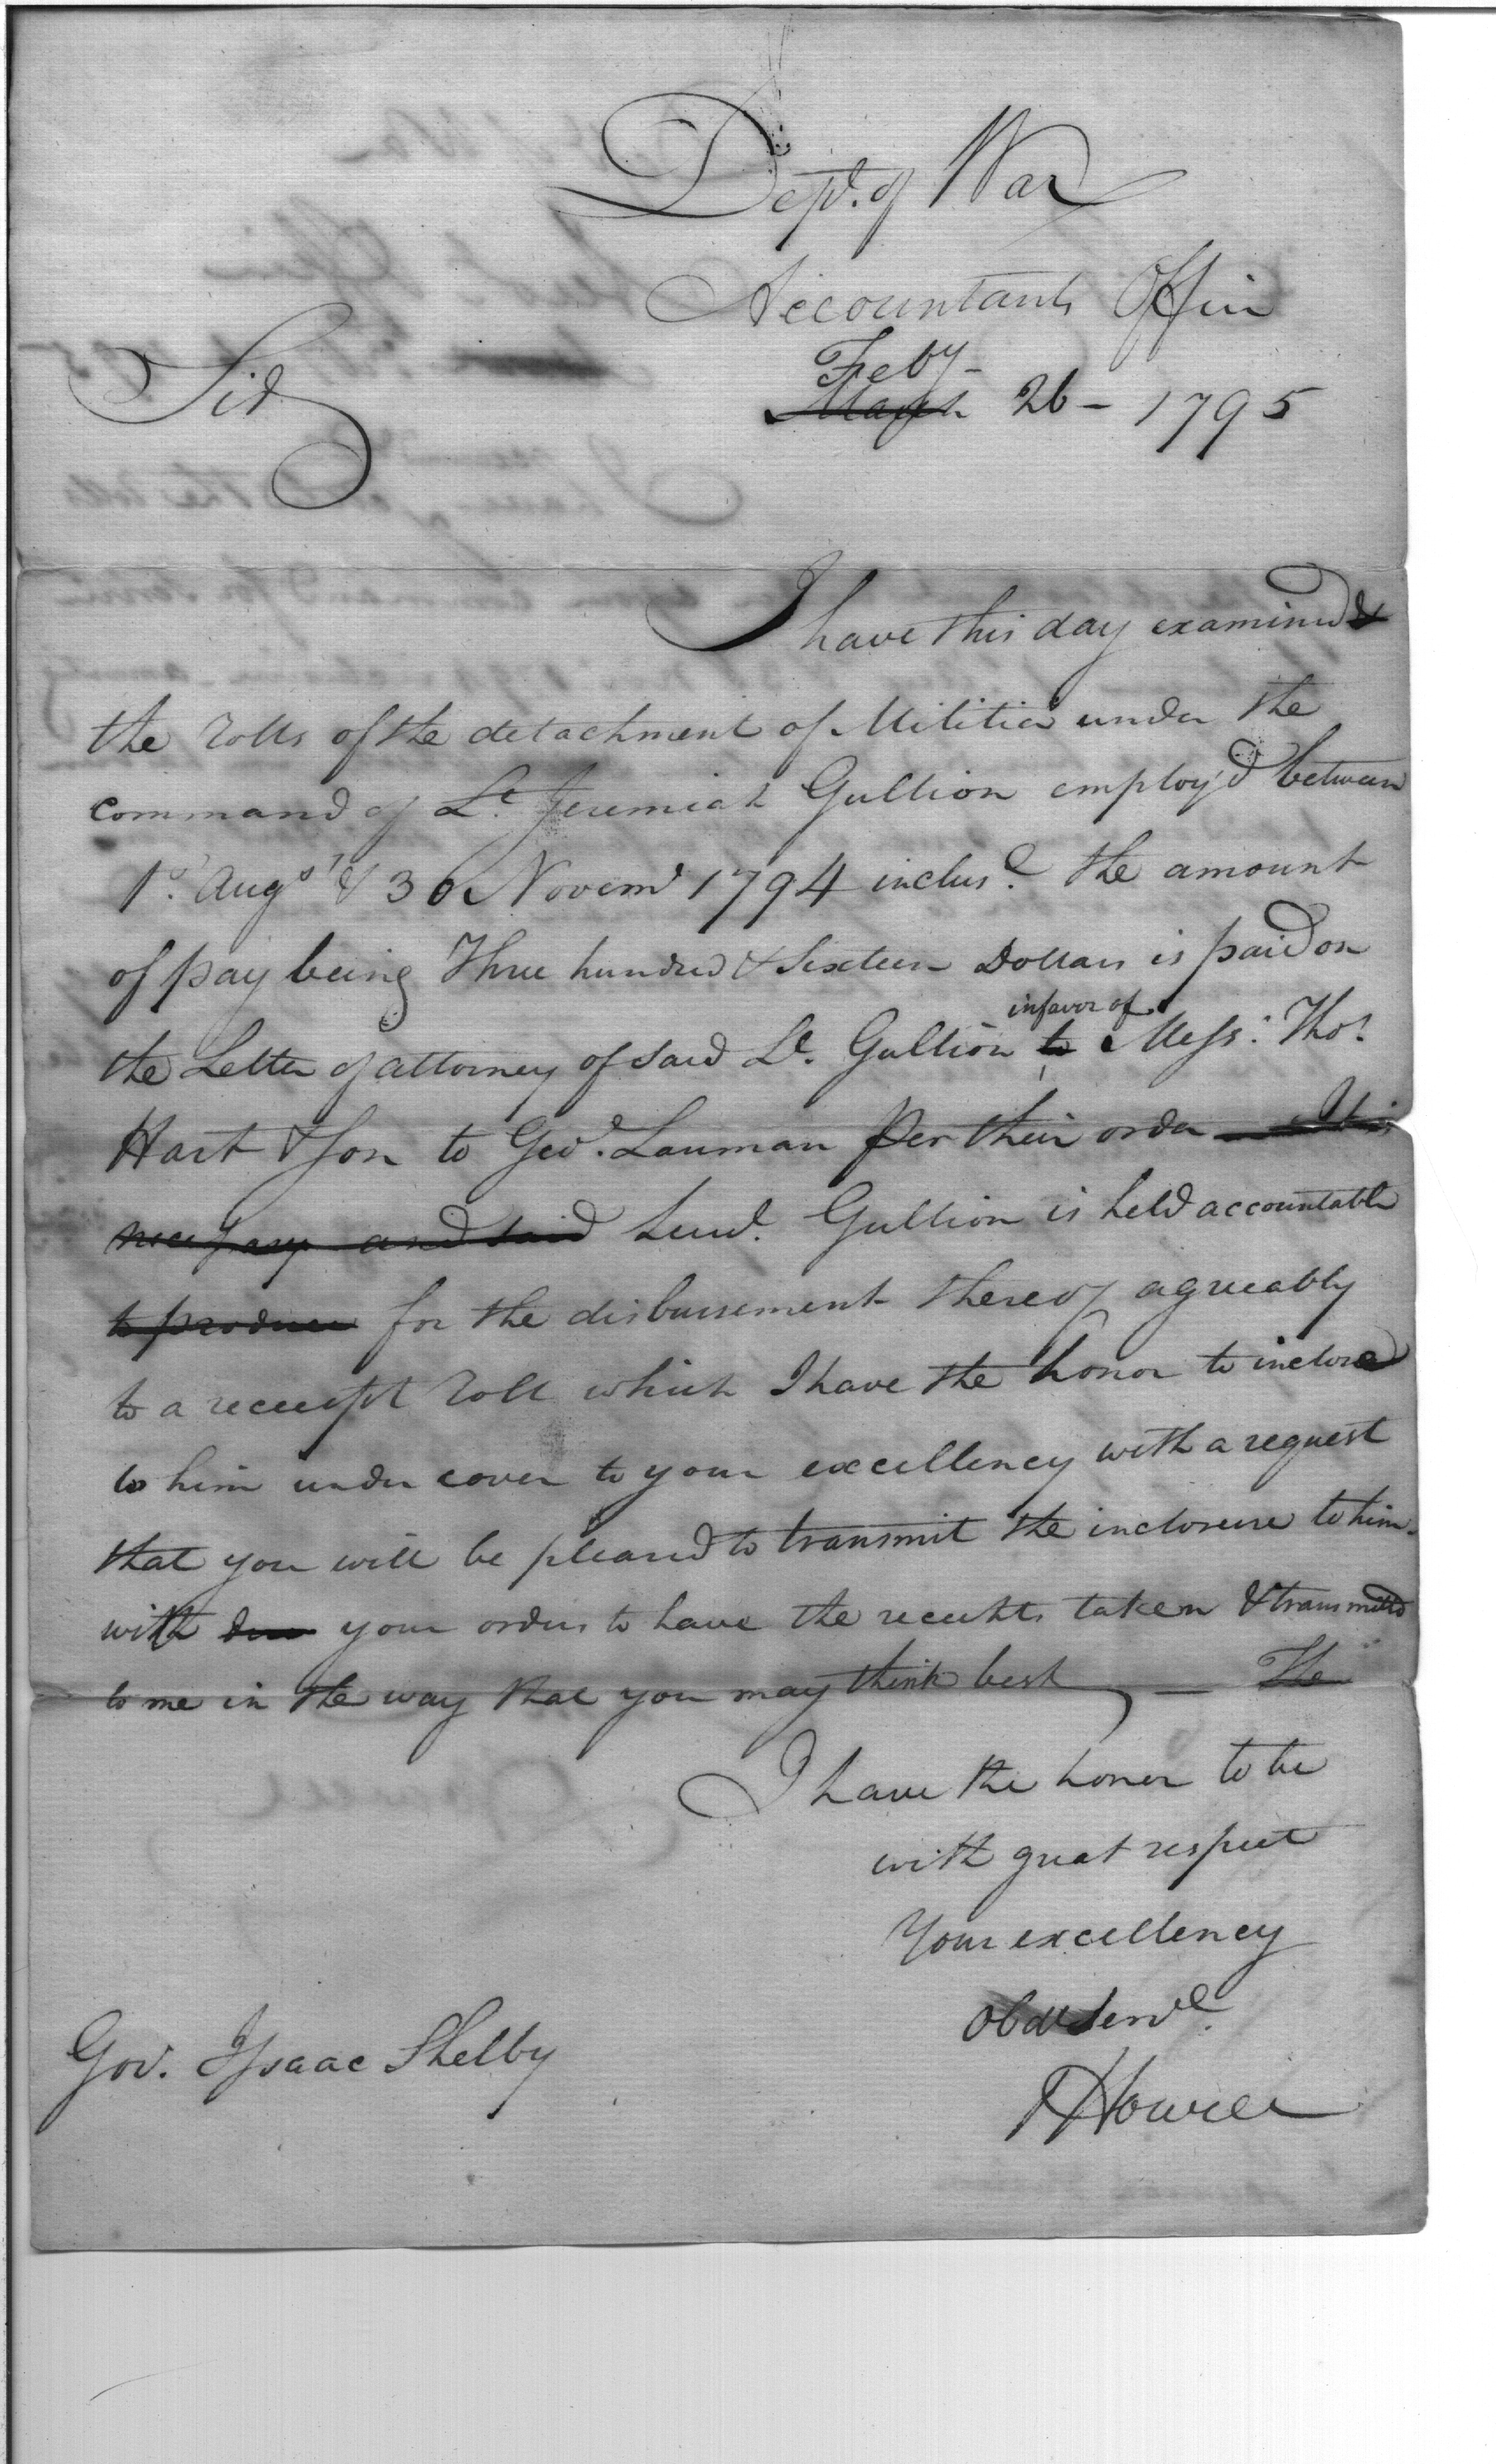 Dept. of War
Accountants Office
Feby
March 26 - 1795
Sir
I have this day examined &
the rolls of the detachment of Militia under the
command of Lt. Jeremiah Gullion employ'd between
1st. Augst & 30 Novemr 1794 inclusve. the amount
of pay being Three hundred & sixteen Dollars is paid on
in favor of
the Letter of attorney of said Lt. Gullion to Messrs. Thos.
Hart & Son to Geo. Lauman per their order It is
necessary and said Lieut. Gullion is held accountable
to produce for the disbursement thereof agreeably
to a receipt roll which I have the honor to inclose
to him under cover to your excellency with a request
that you will be pleased to transmit the inclosure to him
with due your orders to have the receipts taken & transmitted
to me in the way that you may think best — The
I have the honor to be
with great respect
Your excellency
Obdt Servt.
Gov. Isaac Shelby
J Howell